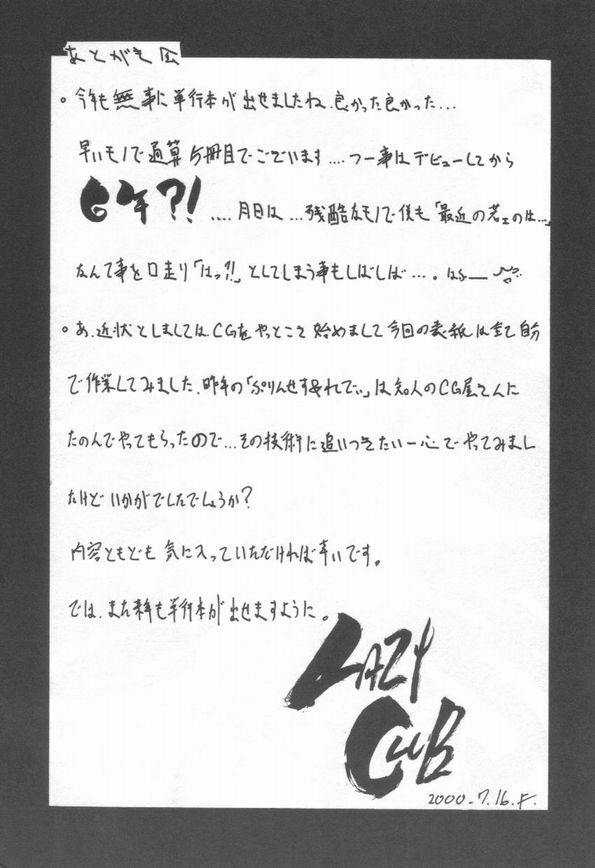 あとがき
。今年も無事に単行本が出せましたね、良かった良かった...
早いモノで通算5冊目でございます....つー事はデビューしてから
6年?! ....月日は...残酷なモノで僕も「最近の若ェのは...」
なんて事を口走り「はっ?!」としてしまう事もしばしば....。はふー
。あ、近状としましては、CGをやっとこそ始めまして今回の表紙は全て自分
で作業してみました、昨年の「ぷりんせすあれでぃ」は知人のCG屋さんに
たのんでやってもらったので...その技術に追いつきたい一心でやってみまし
たけど いかがでしたでしょうか?
内容ともども 気に入っていただければ幸いです。
では、また来年も単行本が出せますように。
LAZY
CLUB
2000.7.16.F.